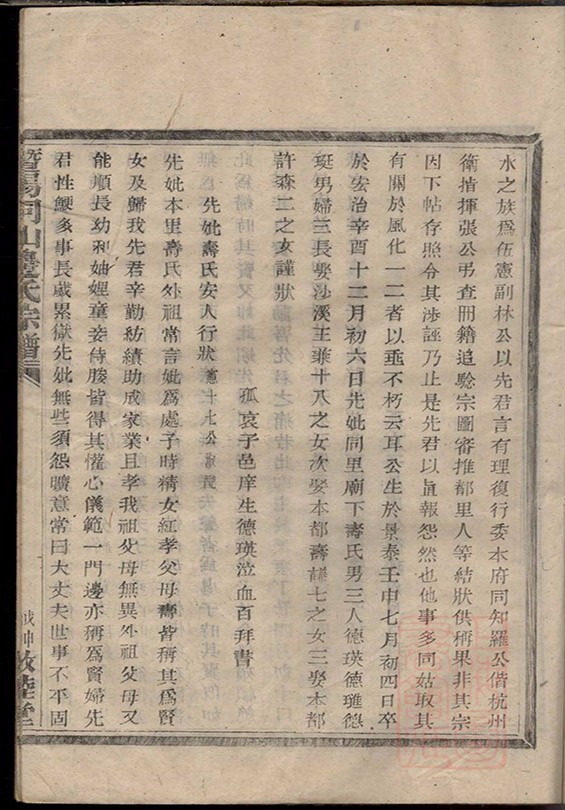 水之族爲伍憲副林公以先君言有理復行委本府同知羅公偕杭州
衛指揮張公弔查冊籍追驗宗圖審推都里人等結狀供稱果非其宗
因下帖存照令其涉誣乃止是先君以眞報怨然也他事多同姑取其
有關於風化一二者以垂不朽云耳公生於景泰壬申七月初四日卒
於安治辛酉十二月初六日先妣同里廟下壽氏男三人德瑛德璡德
珽男婦三長娶沙溪王業十八之女次娶本都壽謙七之女三娶本都
許森二之女謹狀
孤哀子邑庠生德瑛泣血百拜書
先妣壽氏安人行狀
先妣本里壽氏外祖常言妣爲處子時精女紅孝父母壽皆稱其爲賢
女及歸我先君辛勤紡績助成家業且孝我祖父母無異外祖父母又
能順長幼和妯娌童妾侍媵皆得其懽心儀範一門邊亦稱爲賢婦先
君性鯁多事長歲累獄先妣無些須怨曠意常曰大丈夫世事不平固
暨陽同山邊氏宗譜
戊申 敦睦堂